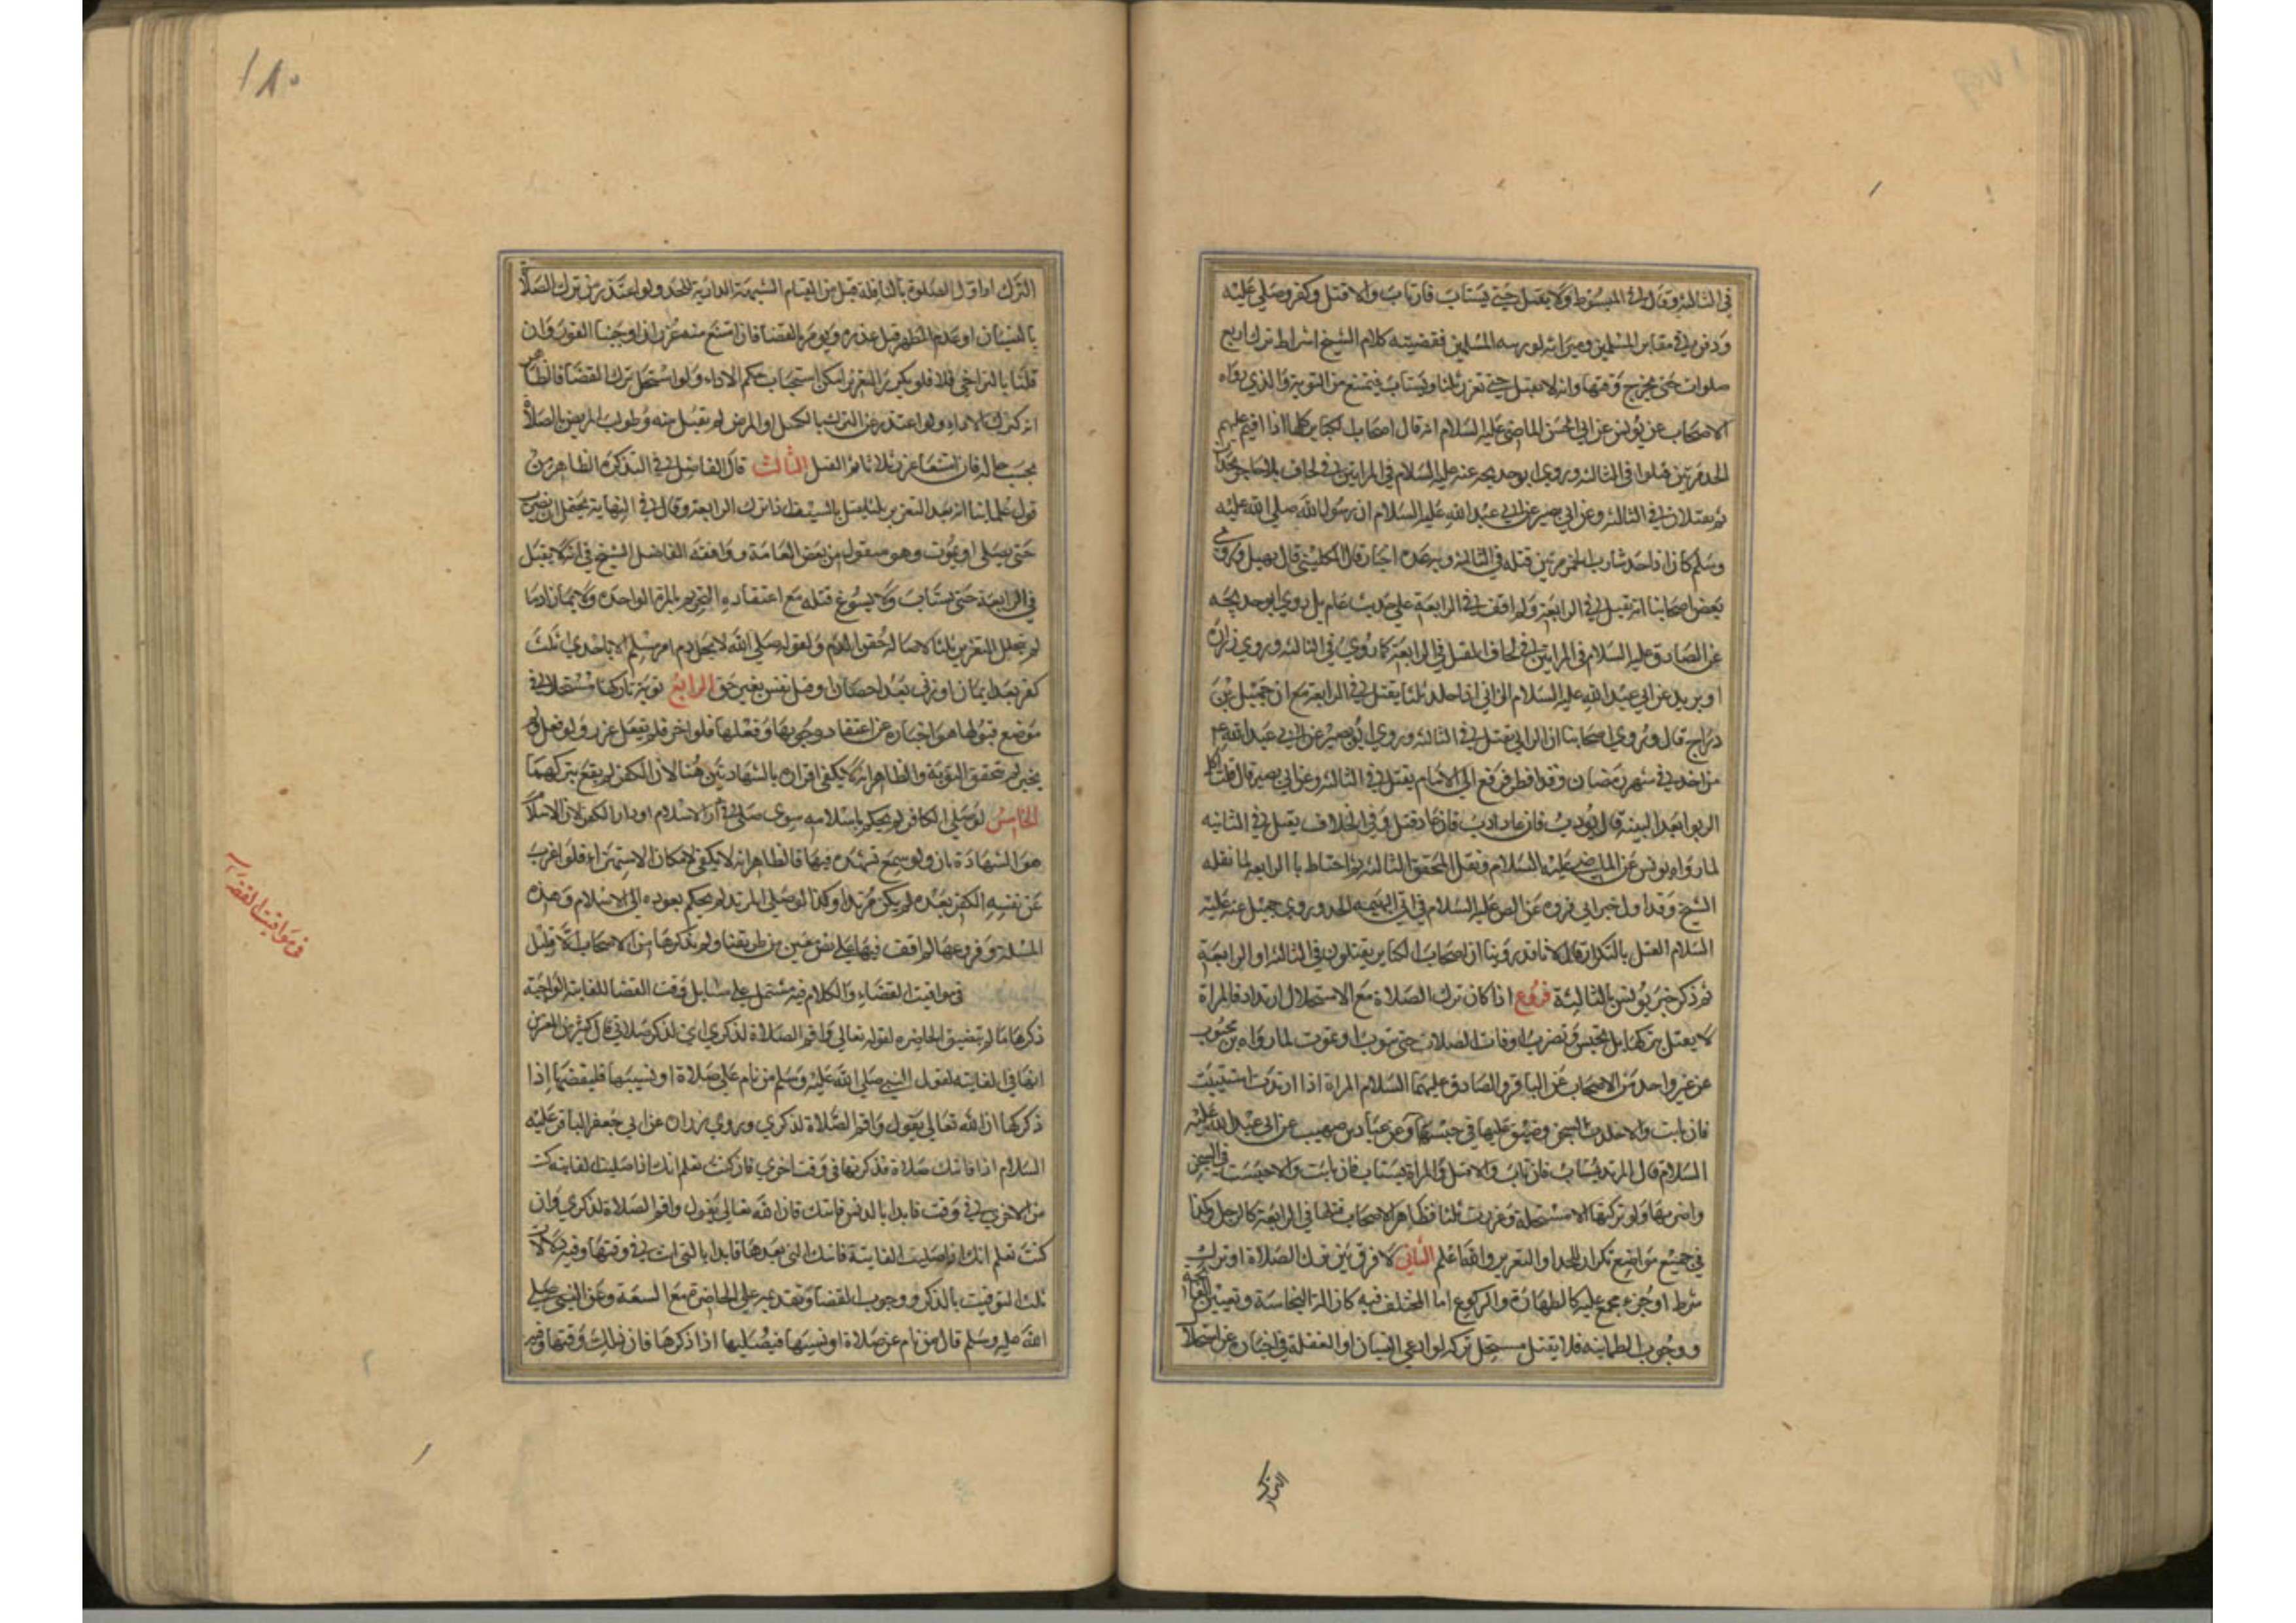 في الثالثة وقال في المبسوط ولا يقتل حتى يستتاب فان تاب والا قتل وكفر وصلي عليه
ودفن في مقابر المسلمين وميراثه لورثته المسلمين فقضيته كلام الشيخ اشراط ترك اربع
صلوات حتى يخرج وقتها وانه لا يقتل حتى تعزر ثلثا ويستتاب فيمتنع من التوبة والذي رواه
الاصحاب عن يونس عن ابي الحسن الماضي عليه السلام انه قال اصحاب الكباير كلها اذا اقيم عليهم
الحد مرتين قتلوا في الثالثة وروى ابو خديجة عنه عليه السلام في المراتين في لحاف
ثم يقتلان في الثالثة وعن ابي بصير عن ابي عبد الله عليه السلام ان رسول الله صلى الله عليه
وسلم كان اذا حد شارب الخمر مرتين قتله في الثالثة وبه عدة اخبار قال الكليني قال جميل وروى
بعض اصحابنا انه يقتل في الرابعة ولم اقف في الرابعة على حديث عام بل روى ابو خديجة
عن الصادق عليه السلام في المراتين في لحاف القتل في الرابعة كما روي في الثالثة وروى زرارة
او بريد عن ابي عبد الله عليه السلام الزاني اذا جلد ثلثا يقتل في الرابعة مع ان جميل بن
دراج قال وروى اصحابنا ان الزاني يقتل في الثالثة وروى ابو بصير عن ابي عبد الله ع
من اخذ في شهر رمضان وقد افطر فرفع الى الامام يقتل في الثالثة وعن ابي بصير قال قلت اكل
الربوا بعد البينة قال يودب فان عاد ادب فان عاد قتل وفي الخلاف يقتل في الثانية
لما رواه يونس عن الماضي عليه السلام ونقل المحقق الثالثة ثم احتاط بالرابعة لما نقله
الشيخ وقد اول خبر ابي فروه عن عليه السلام في الحد وروى جميل عنه عليه
السلام القتل بالتكرار قال لانا قد روينا ان اصحاب الكباير يقتلون في الثالثة او الرابعة
ثم ذكر خبر يونس بالثالثة فروع اذا كان ترك الصلاة مع الاستحلال ارتداد فالمراة
لا يقتل بتركها بل تحبس وتضرب اوقات الصلاة حتى تتوب او تموت لما رواه بن محبوب
عن غير واحد من الاصحاب عن الباقر والصادق عليهما السلام المراة اذا ارتدت استتيبت
فان تابت والا خلدت السجن وضيق عليها في حبسها وعن عباد بن صهيب عن ابي عبد الله عليه
السلام قال المرتد يستتاب فان تاب والا قتل والمراة يستتاب فان تابت والا حبست في السجن
واضر بها ولو تركتها لا مستحلة وعزرت ثلثا فظاهر الاصحاب قتلها في الرابعة كالرجل وكذا
في جميع مواضع تكرار الحد او التعزير والله اعلم الثاني لا فرق بين ترك الصلاة او ترك
شرط او جزء مجمع عليه كالطهارة والركوع اما المختلف فيه كازالة النجاسة وتعيين الفاتحة
ووجوب الطمانينه فلا يقتل مستحل تركه ولو ادعى النسيان او الغفلة في اخباره عن استحلال
الترك
١٨٠
الترك او اول الصلوة بالنافلة قبل من لقيام الشبهة الدارية للحد ولو اعتذر من ترك الصلاة
بالنسيان او عدم المطهر قبل عذره ويومر بالقضا فان امتنع منه عزر ان اوجبنا الفور وان
قلنا بالتراخي فلا فلو تكرر التعزير امكن استحباب حكم الاداء ولو استحل ترك القضا فالظاهر
انه كترك الاداء ولو اعتذر عن الترك بالكسل او المرض لم يقبل منه وطولب المريض بالصلاة
بحسب حاله فان امتنعا عزرا ثلاثا ثم القتل الثالث قال الفاضل في التذكرة الظاهر من
قول علماينا انه بعد التعزير ثلثا يقتل بالسيف اذا ترك الرابعة وقال في النهاية يحتمل ان يضرب
حتى يصلي او يموت وهو منقول من بعض العامة ووافقه الفاضل الشيخ في انه لا يقتل
في الرابعة حتى يستتاب ولا يسوغ قتله مع اعتقاده التحريم بالمرة الواحدة ولا بما زاد ما
لم يتخلل التعزير ثلثا لاصالة حقن الدم ولقوله صلى الله لا يحل دم امرء مسلم الا باحدى ثلث
كفر بعد ايمان او زنى بعد احصان او قتل نفس بغير حق الرابع توبة تاركها مستحلا في
موضع قبولها هو اخباره عن اعتقاد وجوبها وفعلها فلو اخبر فلم يفعل عزر ولو فعل ولم
يخبر لم تتحقق التوبة والظاهر انه لا يكفي اقراره بالشهادتين هنا لان الكفر لم يقع بتركهما
الخامس لو صلى الكافر لم يحكم باسلامه سوى صلى في دار الاسلام او دار الكفر لان الاسلام
هو الشهادة بان ولو سمع تشهده فيها فالظاهر انه لا يكفي لامكان الاستهزاء فلو اعرب
عن نفسه الكفر بعده لم يكن مرتدا وكذا لو صلى المرتد لم يحكم بعوده الى الاسلام وهذه
المسئلة وفروعها لم اقف فيها على نص عين من طريقنا ولم يذكرها من الاصحاب الا قليل
في مواقيت القضاء والكلام فيه مشتمل على مسايل وقت القضا للفايتة الواجبة
ذكرها ما لم يتضيق الحاضره لقوله تعالى واقم الصلاة لذكري اي لذكر صلاتي قال كثير من المفسرين
انها في الفايتة لقول النبي صلى الله عليه وسلم من نام على صلاة او نسيها فليقضها اذا
ذكرها ان الله تعالى يقول واقم الصلاة لذكري وروى زراره عن ابي جعفر الباقر عليه
السلام اذا فاتتك صلاة فذكرتها في وقت اخرى فان كنت تعلم انك اذا صليت الفايتة كنت
من الاخرى في وقت فابدا بالتي فاتتك فان الله تعالى يقول واقم الصلاة لذكري وان
كنت تعلم انك اذا صليت الفايتة فاتتك التي بعدها فابدا بالتي انت في وقتها وفيه دلالات
ثلث التوقيت بالذكر ووجوب القضا وتقديمه على الحاضرة مع السعة وعن النبي صلى
الله عليه وسلم قال من نام عن صلاة او نسيها فيصليها اذا ذكرها فان ذلك وقتها وفيه
في مواقيت القضاء